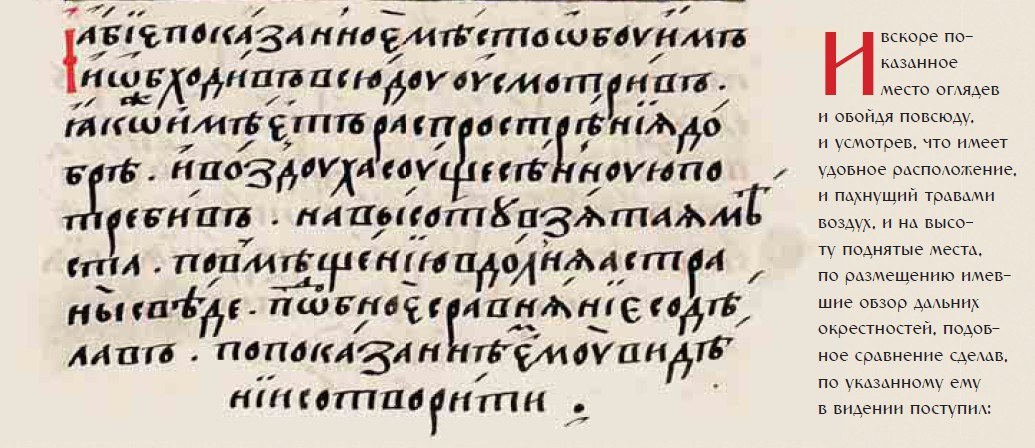 Іабїепоказанноемѣстоѡбоуимъ
иѡбходивъвсюдоуоусмотривъ .
їакѡимѣетъраспрострѣнїѧдо
брѣ . ипоздоухасоущестѣнноуюпо
требивъ . навысотꙋвзѧтаѧмѣ
ста . повмѣщенїювдолнѧѧстра
ныісвѣде . пѡⷣбноесравнѧнїесодѣ
лавъ . попоказаннѣемоувидѣ
нїисотворити .
И вскоре по-
казанное
место оглядев
и обойдя повсюду,
и усмотрев, что имеет
удобное расположение,
и пахнущий травами
воздух, и на высо-
ту поднятые места,
по размещению имев-
шие обзор дальних
окрестностей, подоб-
ное сравнение сделав,
по указанному ему
в видении поступил: